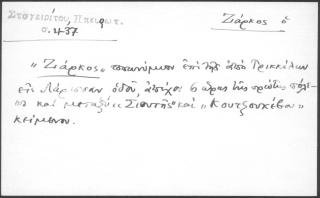 Στογειρίτου, Ππειρωτ.
σ. 437
Ζιάρκος ὁ
„Ζιάρκος" τοπωνύμιον ἐπὶ τῆς ἀπὸ Τρικκάλων
εἰς Λάρισσαν ὁδοῦ, ἀπέχει 6 ὥρας τῆς πρώτης πόλε-
ως καὶ μεταξὺ „Σιουτῆς" καὶ „Κουτζουκέβα"
κείμενον.